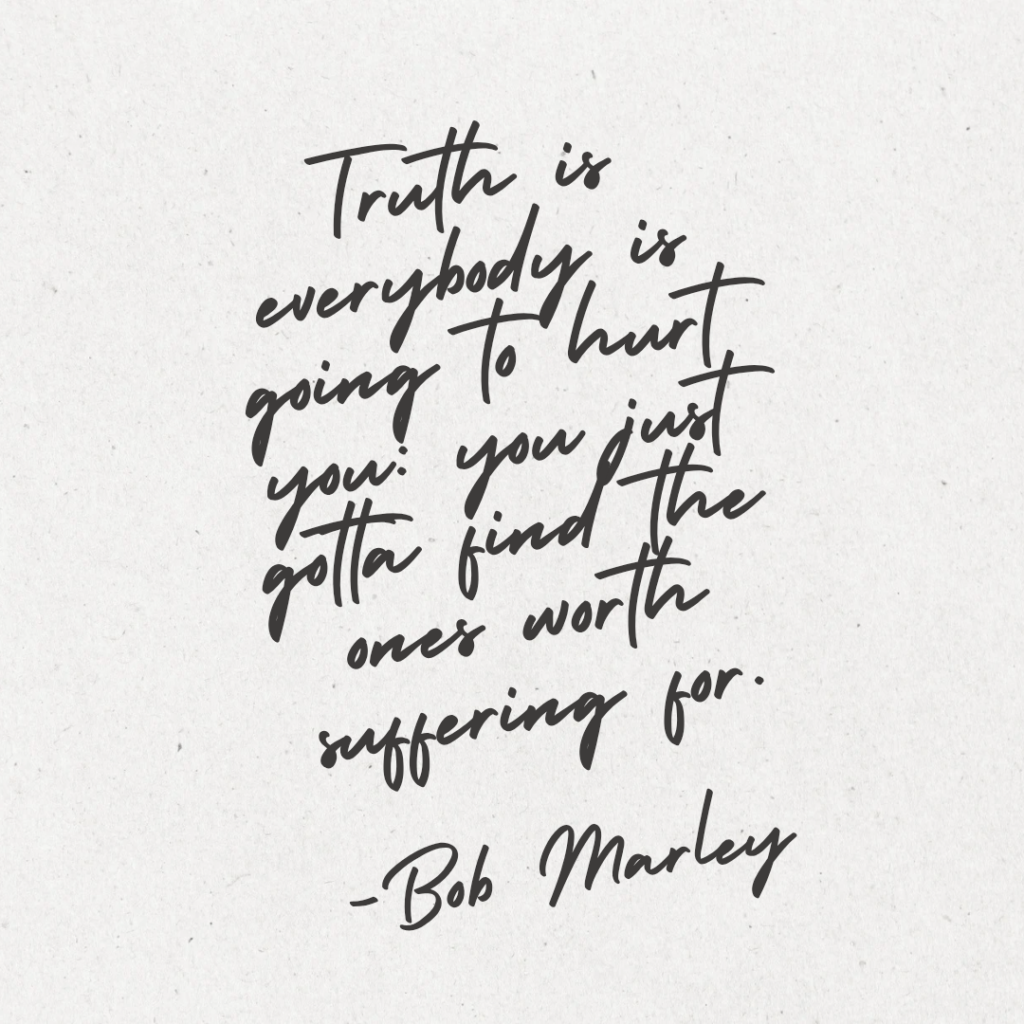 Truth is
everybody is
going to hurt
you: you just
gotta find the
ones worth
suffering for.
-Bob Marley